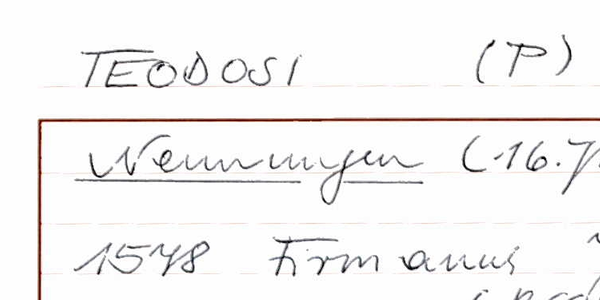 TEODOSI (P)
Nennungen (16. J
1548 Firmanus